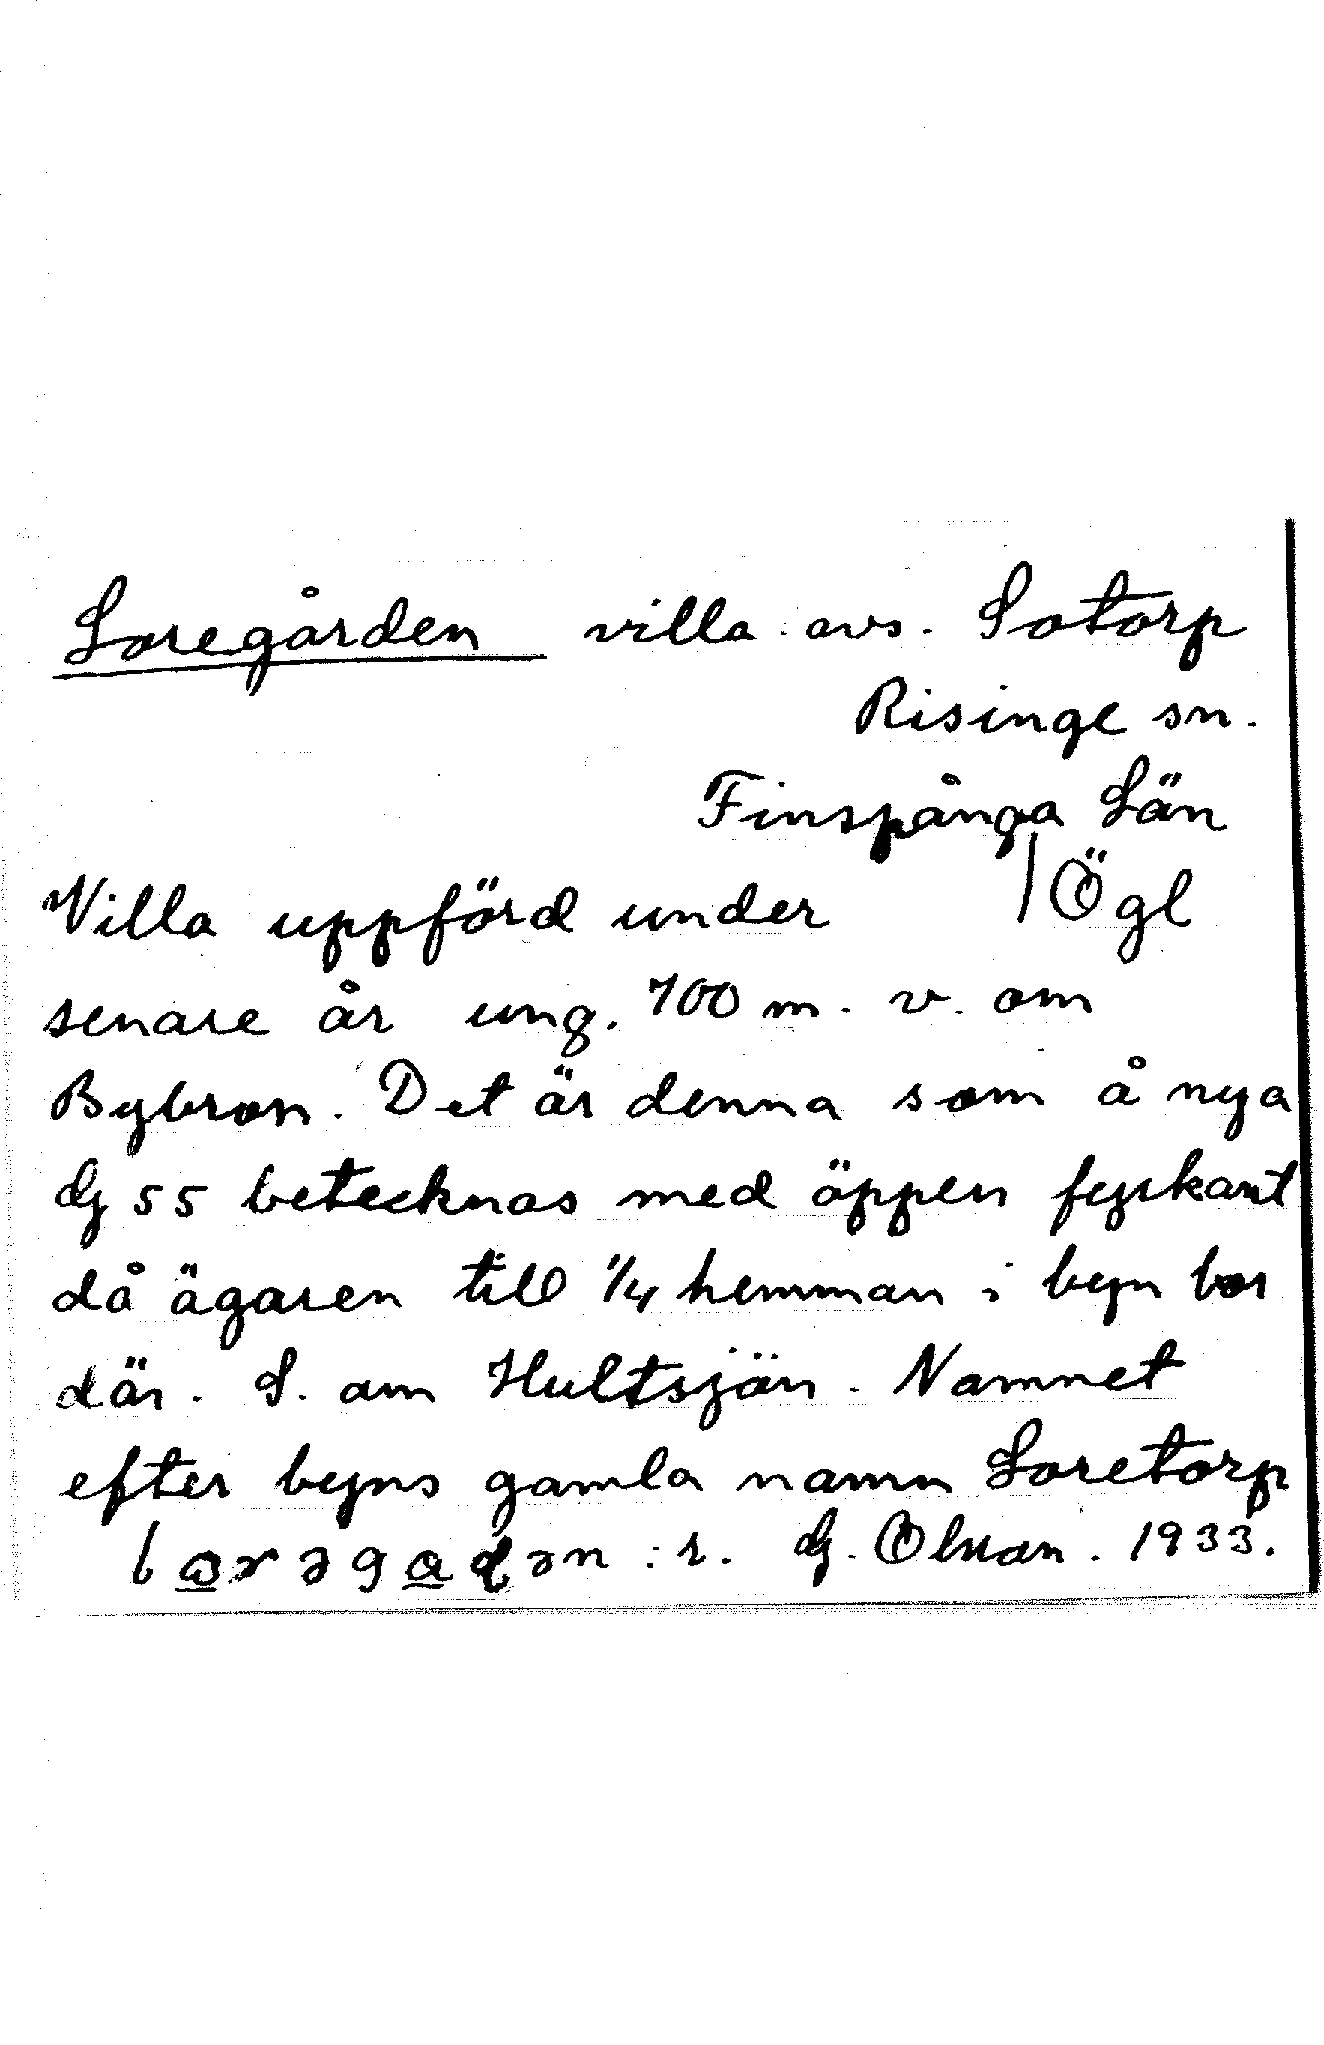 Loregården villa avs. Lotorp
Risinge sn.
Finspånga Län
Villa uppförd under / Ögl
senare år ung. 700 m. v. om
Bybron. Det är denna som å nya
G 55 betecknas med öppen fyrkant
då ägaren till 1/4 hemman i byn bor
där. S. om Hultsjön. Namnet
efter byns gamla namn Loretorp
:r. G. Olsson. 1933.